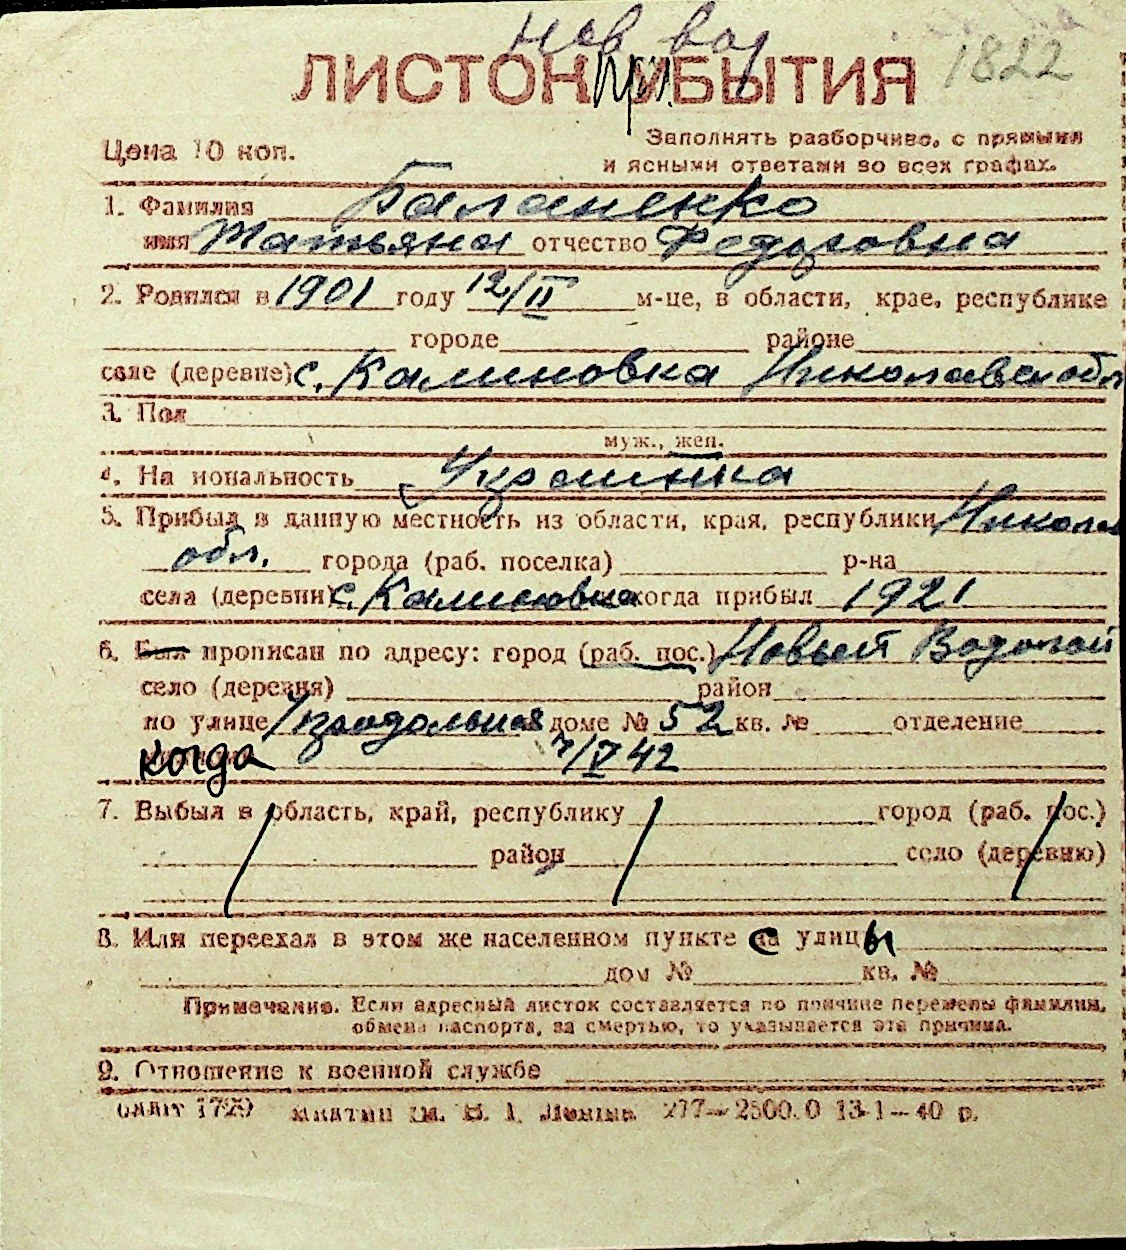 Нов вод
1822
ЛИСТОК при УБЫТИЯ
Цена 10 коп.
Заполнять разборчиво, с прямыми
и ясными ответами во всех графах.
1. Фамилия Баланенко
имя Татьяна отчество Федоровна
2. Родился в 1901 году 12/II м-це, в области, крае, республике
городе районе
селе (деревне) с. Калиновка Николаевск обл
3. Пол
муж., жен.
4. На иональность Украинка
5. Прибыл в данную местность из области, края, республики Николаев
обл. города (раб. поселка) р-на
села (деревни) с. Калиновка когда прибыл 1921
6. Был прописан по адресу: город (раб. пос.) Новый Водолай
село (деревня) район
по улице доме № 52 кв. № отделение
когда 7/V 42
7. Выбыл в область, край, республику город (раб. пос.)
район село (деревню)
8. Или переехал в этом же населенном пункте с улицы
дом № кв. №
Примечание. Если адресный листок составляется по причине перемены фамилии,
обмена паспорта, за смертью, то указывается эта причина.
9. Отношение к военной службе
1729 им. В. І. Леніна. 277—2500.0 13-1—40 р.